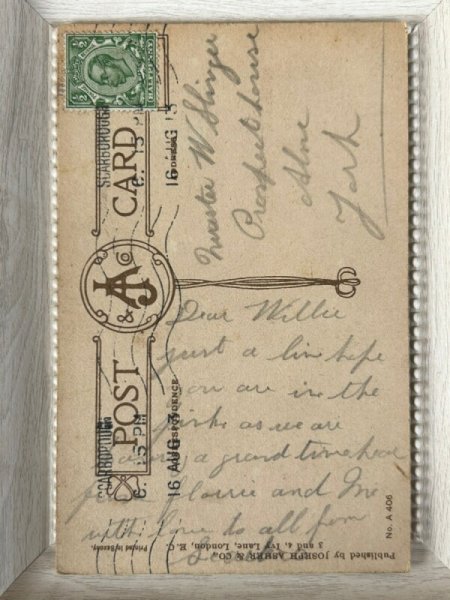 POST CARD
A & Co
SCARBOROUGH
6. 15 PM
16 AUG 13
SCARBOROUGH
6. 15 PM
16 AUG 13
CORRESPONDENCE
ADDRESS
HALFPENNY
1/2
Master W Slinger
Prospect house
Alne
York
Dear Willie
just a line hope
you are in the
pink as we are
having a grand time here
from Florrie and Me
with love to all from
Published by JOSEPH ASHER & CO.,
3 and 4, Ivy Lane, London, E. C.
Printed in Saxony.
No. A 406